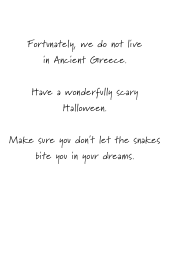 Fortunately, we do not live
in Ancient Greece.
Have a wonderfully scary
Halloween.
Make sure you don't let the snakes
bite you in your dreams.